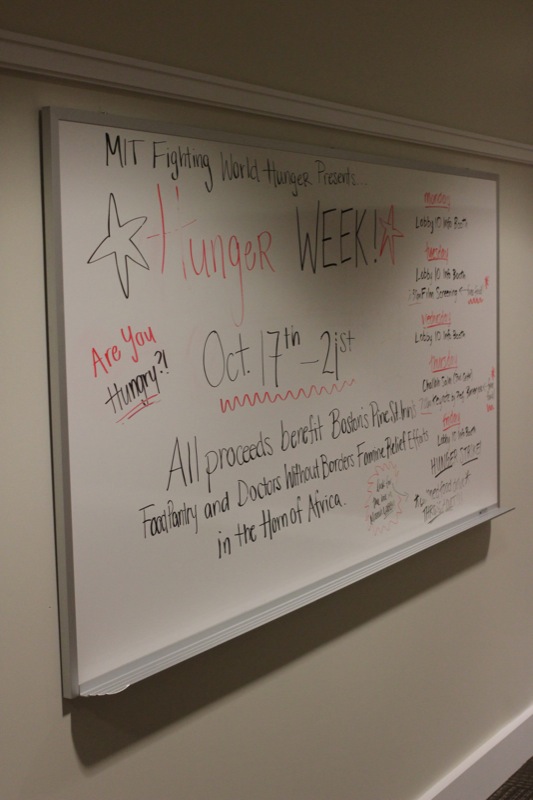 MIT Fighting World Hunger Presents...
Hunger WEEK!
Are You
Hungry?!
Oct. 17th - 21st
All proceeds benefit Boston's Pine St. Inn's
Food Pantry and Doctors Without Borders Famine Relief Efforts
in the Horn of Africa.
Monday
Lobby 10 Info Booth
Tuesday
Lobby 10 Info Booth
Film Screening
Wednesday
Lobby 10 Info Booth
Thursday
Challah Sale
by Prof.
Friday
Lobby 10 Info Booth
HUNGER STRIKE!